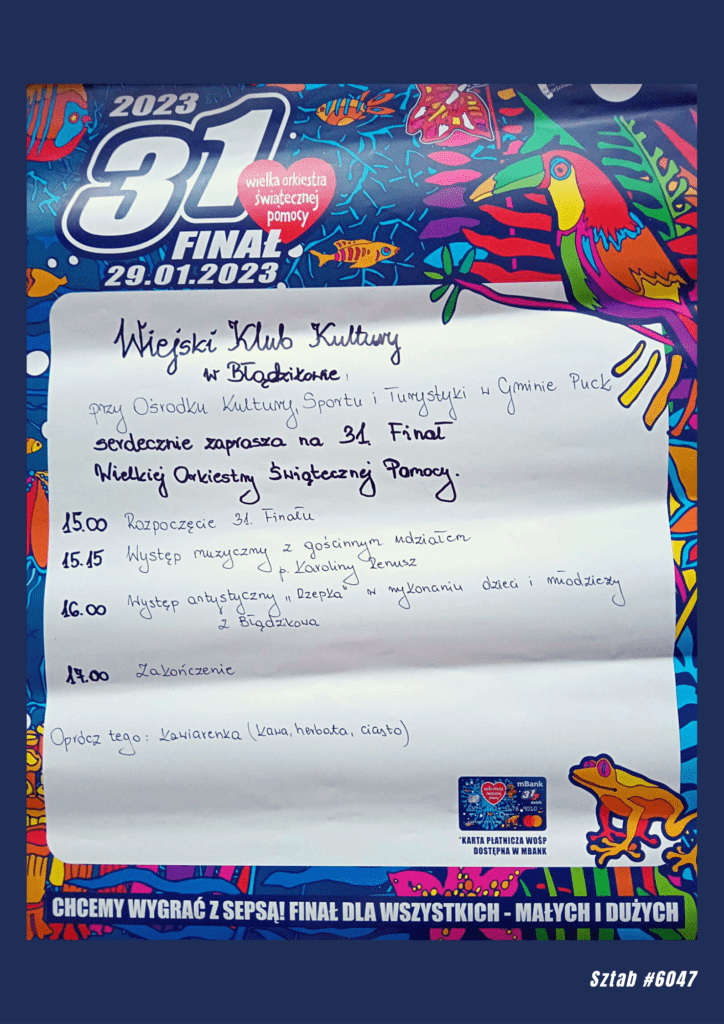 2023
31
wielka orkiestra
świątecznej
pomocy
FINAŁ
29.01.2023
Wiejski Klub Kultury
w Błądzikowie,
przy Ośrodku Kultury, Sportu i Turystyki w Gminie Puck
serdecznie zaprasza na 31. Finał
Wielkiej Orkiestry Świątecznej Pomocy.
15.00 Rozpoczęcie 31. Finału
15.15 Występ muzyczny z gościnnym udziałem
p. Karoliny Renusz
16.00 Występ artystyczny „Rzepka” w wykonaniu dzieci i młodzieży
z Błądzikowa
17.00 Zakończenie
Oprócz tego: Kawiarenka (kawa, herbata, ciasto)
mBank
31
*KARTA PŁATNICZA WOŚP
DOSTĘPNA W MBANK
CHCEMY WYGRAĆ Z SEPSĄ! FINAŁ DLA WSZYSTKICH - MAŁYCH I DUŻYCH
Sztab #6047